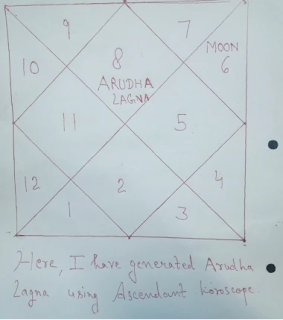 9
7
8
MOON
10
6
ARUDHA
LAGNA
11
5
12
2
4
1
3
Here, I have generated Arudha
Lagna using Ascendant horoscope.